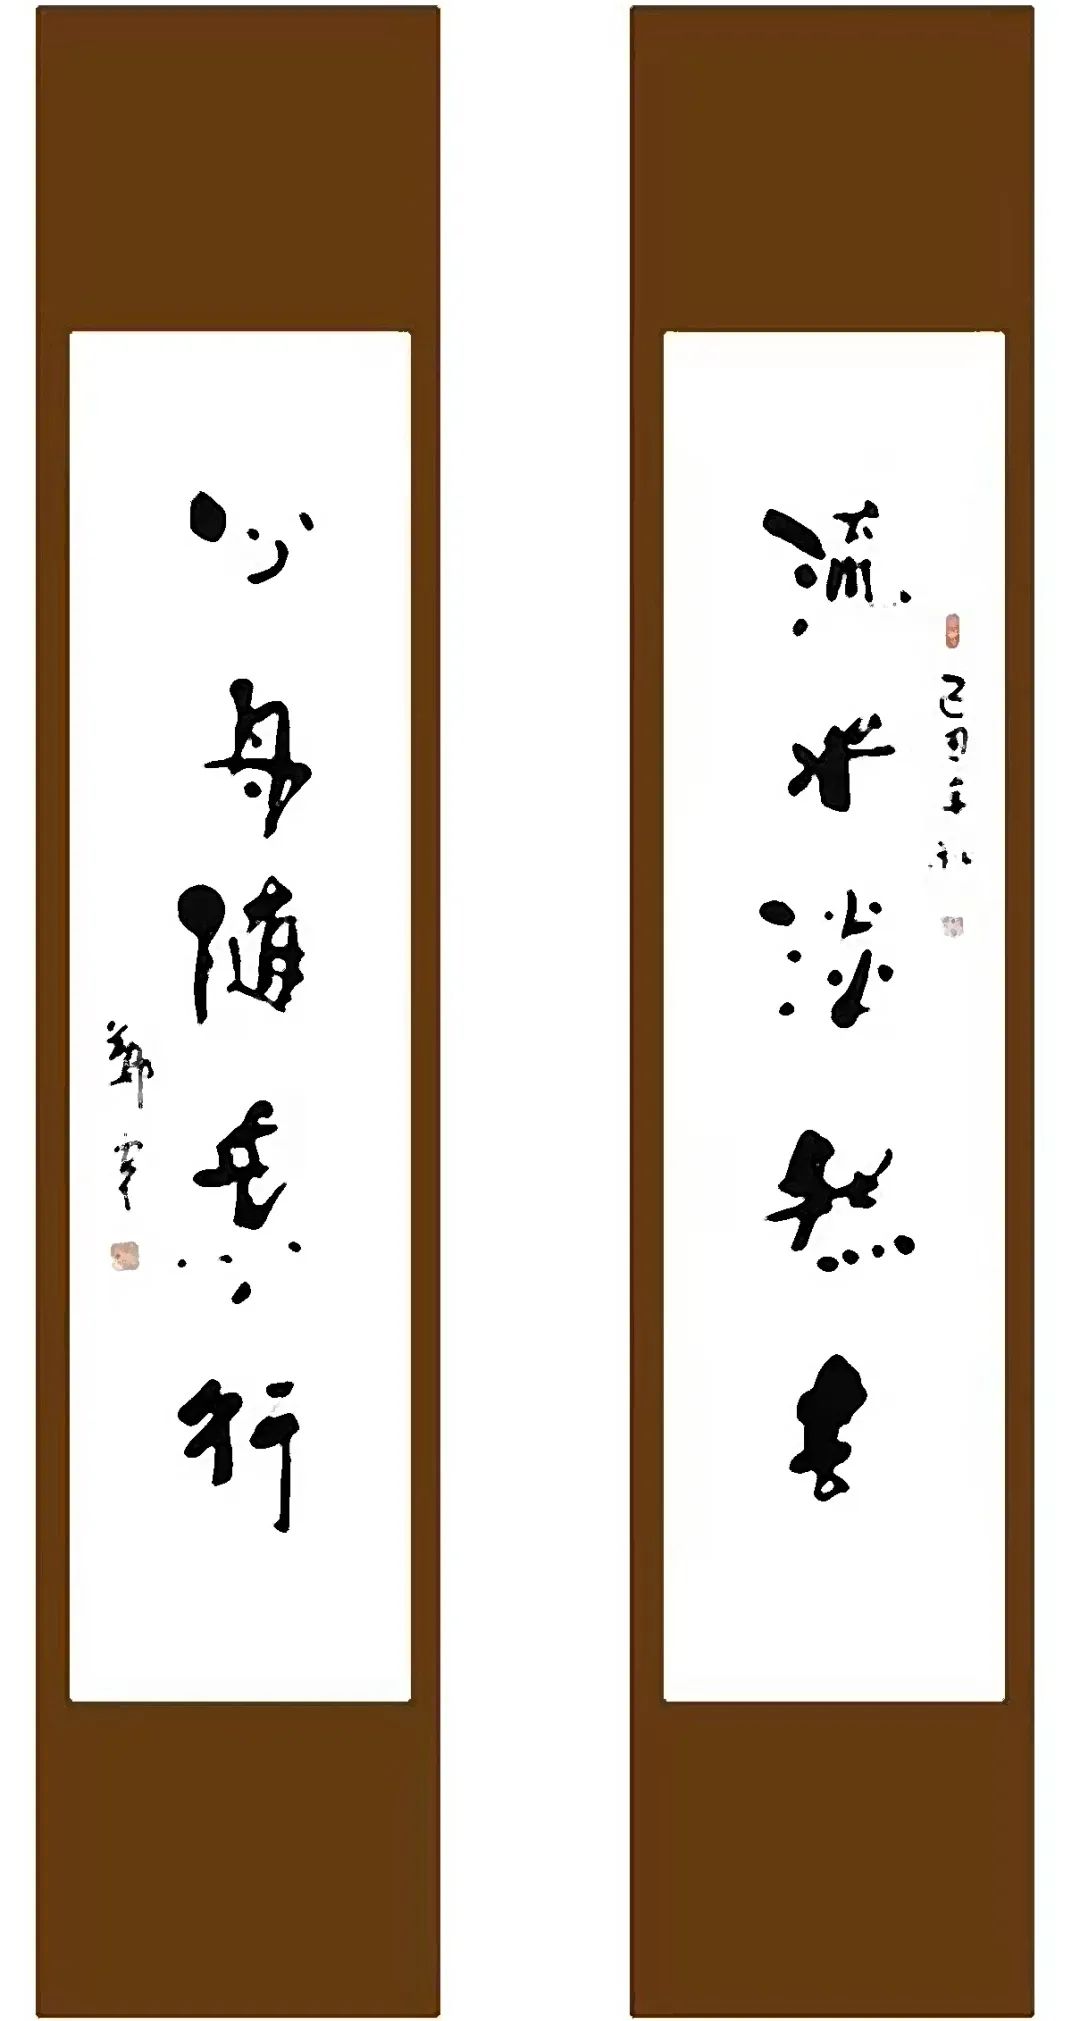 流水淡然去
己丑年初
心舟随意行